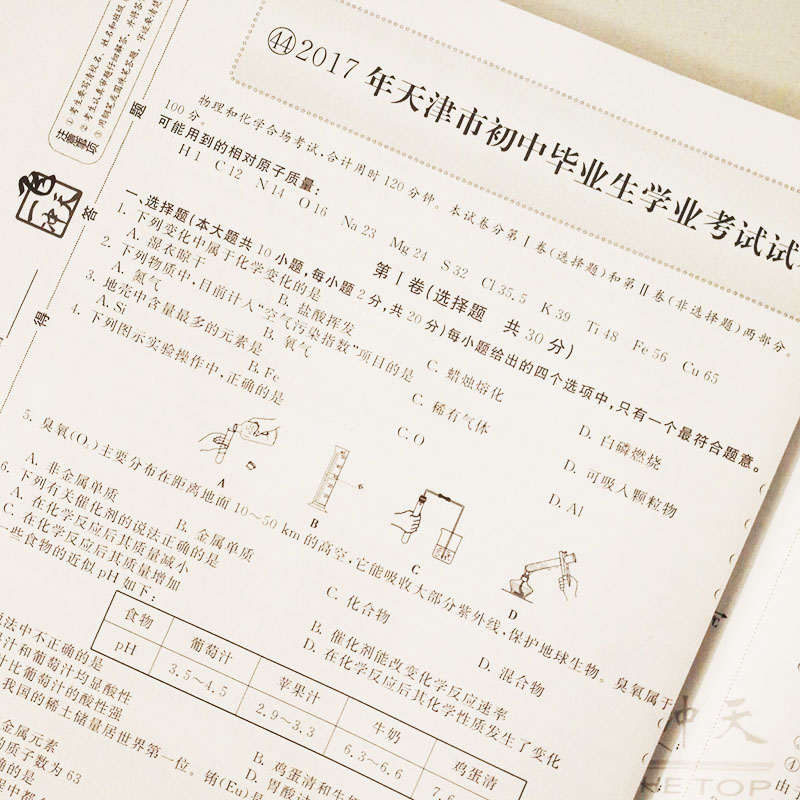 ①考生要写清校名、姓名和班级
②考生认真审题仔细解答
③用钢笔或圆珠笔答题,字迹要清楚
注意事项
题
答
得
冲天
㊹2017年天津市初中毕业生学业考试试
物理和化学合场考试,合计用时120分钟。本试卷分第Ⅰ卷(选择题)和第Ⅱ卷(非选择题)两部分。
100分。
可能用到的相对原子质量:
H 1 C 12 N 14 O 16 Na 23 Mg 24 S 32 Cl 35.5 K 39 Ti 48 Fe 56 Cu 65
第Ⅰ卷(选择题 共30分)
一、选择题(本大题共10小题,每小题2分,共20分)每小题给出的四个选项中,只有一个最符合题意。
1. 下列变化中属于化学变化的是
A. 湿衣晾干 B. 盐酸挥发 C. 蜡烛熔化 D. 白磷燃烧
2. 下列物质中,目前计入“空气污染指数”项目的是
A. 氮气 B. 氧气 C. 稀有气体 D. 可吸入颗粒物
3. 地壳中含量最多的元素是
A. Si B. Fe C. O D. Al
4. 下列图示实验操作中,正确的是
A B C D
5. 臭氧(O₃)主要分布在距离地面10~50 km的高空,它能吸收大部分紫外线,保护地球生物。臭氧属于
A. 非金属单质 B. 金属单质 C. 化合物 D. 混合物
6. 下列有关催化剂的说法正确的是
A. 在化学反应后其质量减小 B. 催化剂能改变化学反应速率
C. 在化学反应后其质量增加 D. 在化学反应后其化学性质发生了变化
一些食物的近似pH如下:
食物 葡萄汁 苹果汁 牛奶 鸡蛋清
pH 3.5~4.5 2.9~3.3 6.3~6.6 7.6
说法中不正确的是
果汁和葡萄汁均显酸性 B. 鸡蛋清和牛
汁比葡萄汁的酸性强 D. 胃酸
我国的稀土储量居世界第一位。铕(Eu)是
金属元素
质子数为63
确的是
冲天
KE TOP